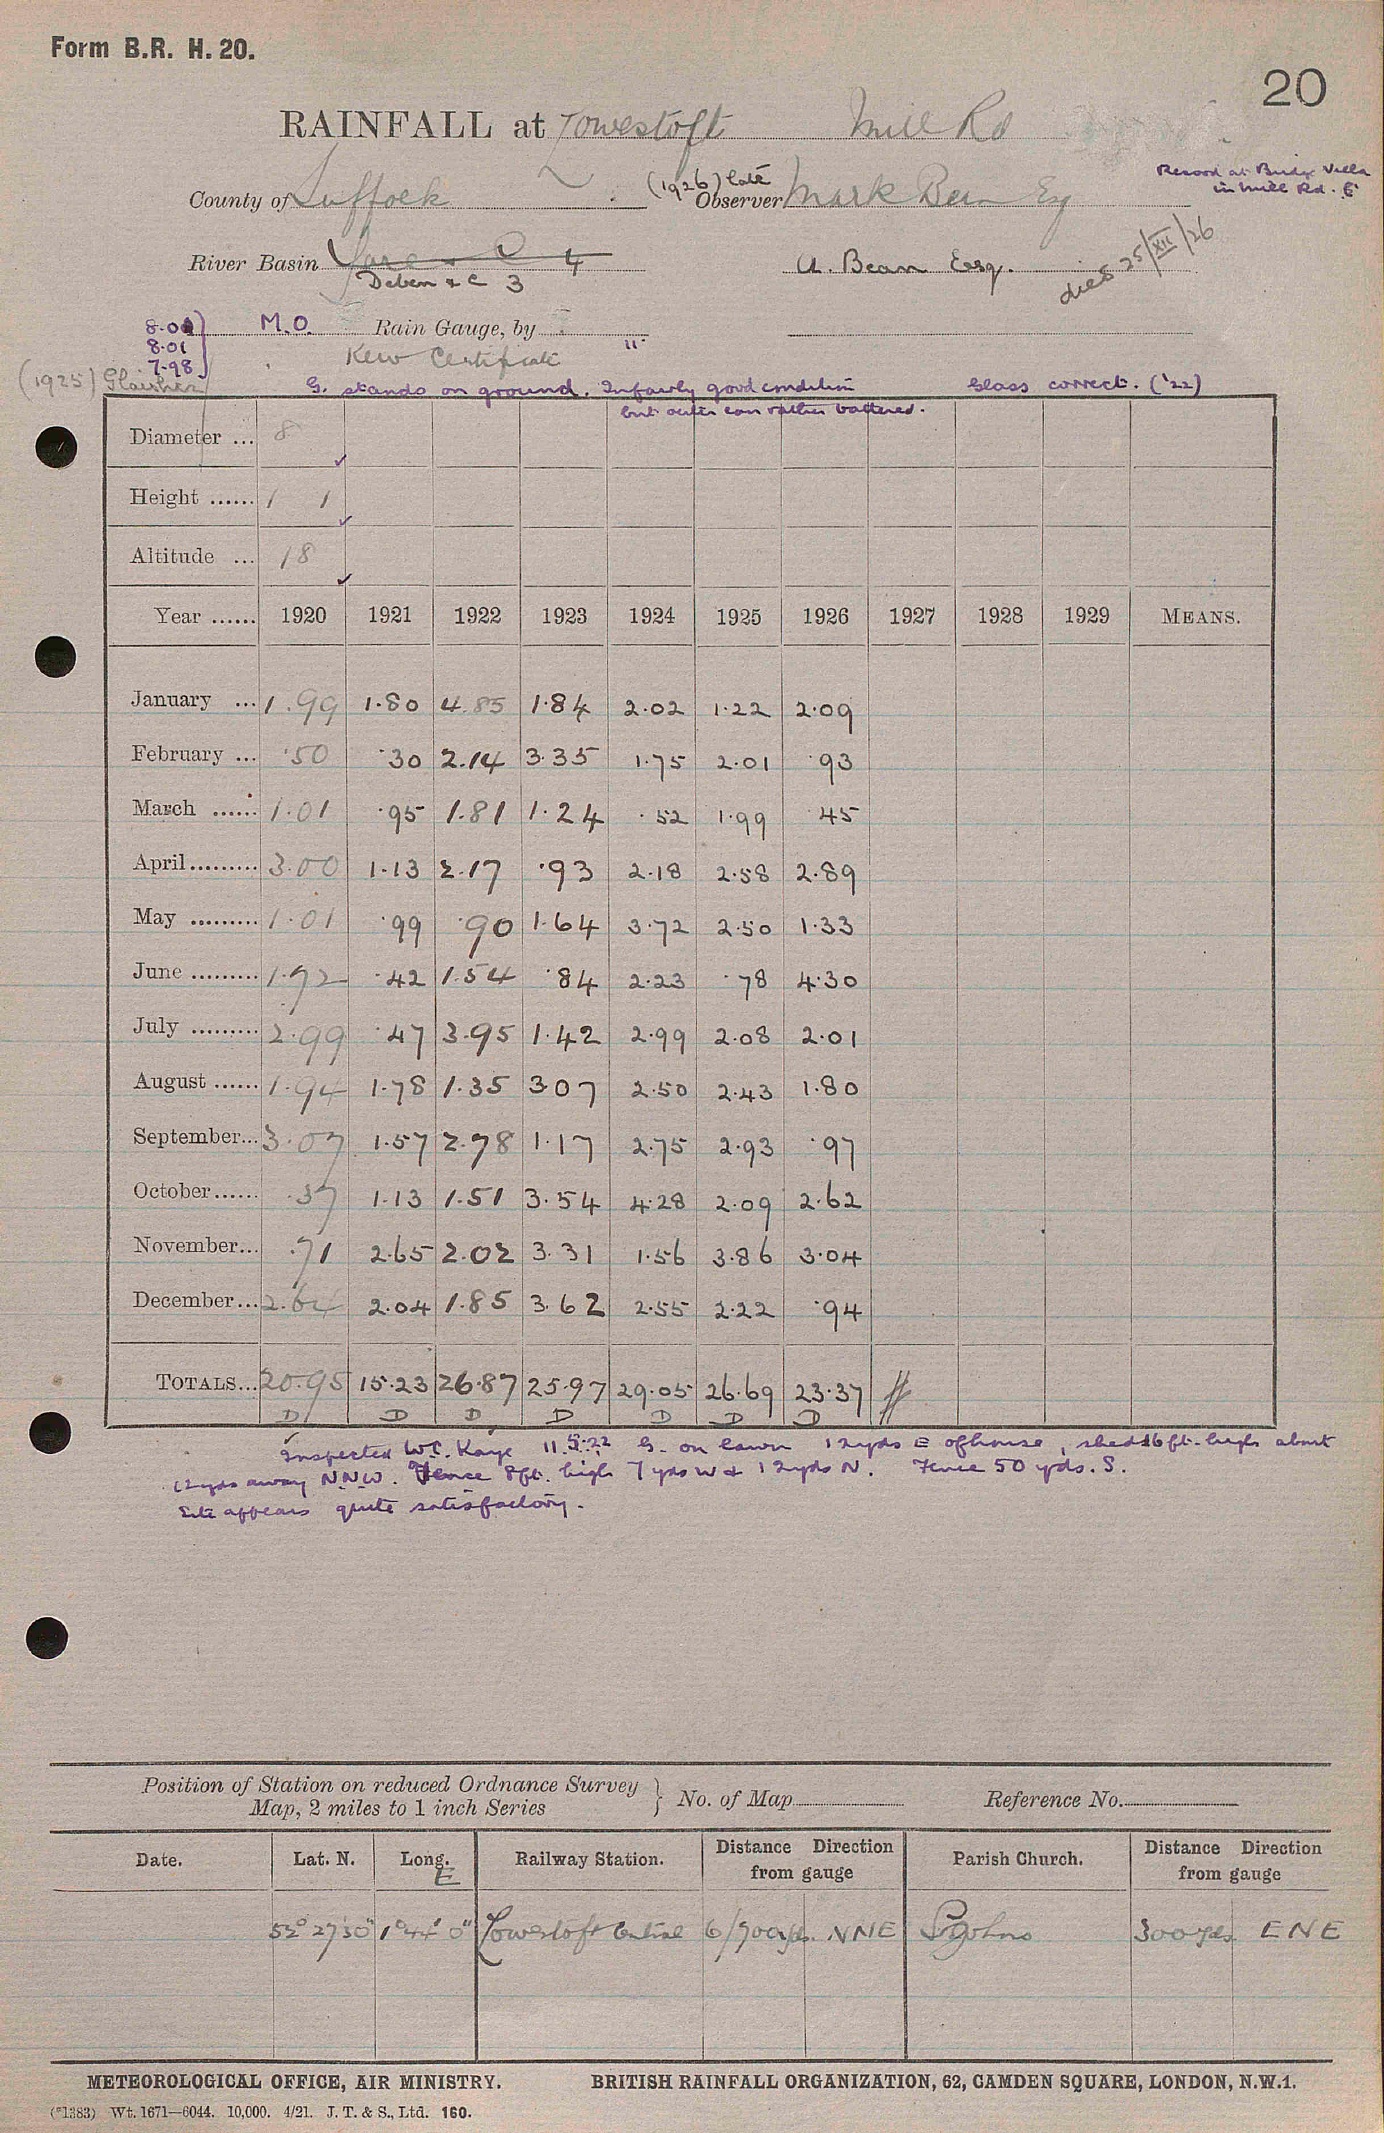 Form B.R. H. 20.
20
RAINFALL at Lowestoft Mill Rd
Record at Bridge Villa
in Mill Rd.
County of Suffolk (1926) late Observer Mark Bean Esq
River Basin Yare & C 4 A. Bean Esq. died 25/XII/26
Deben & C 3
8.00 M.O. Rain Gauge, by
8.01
7.98 Kew Certificate 11
(1925) Glaisher G. stands on ground. In fairly good condition Glass correct. ('22)
but outer can rather battered.
Diameter ... 8
Height ...... 1 1
Altitude ... 18
Year ...... 1920 1921 1922 1923 1924 1925 1926 1927 1928 1929 MEANS.
January ... 1.99 1.80 4.85 1.84 2.02 1.22 2.09
February ... .50 .30 2.14 3.35 1.75 2.01 .93
March ...... 1.01 .95 1.81 1.24 .52 1.99 .45
April ......... 3.00 1.13 2.17 .93 2.18 2.58 2.89
May ......... 1.01 .99 .90 1.64 3.72 2.50 1.33
June ......... 1.72 .42 1.54 .84 2.23 .78 4.30
July ......... 2.99 .47 3.95 1.42 2.99 2.08 2.01
August ...... 1.94 1.78 1.35 3.07 2.50 2.43 1.80
September... 3.07 1.57 2.78 1.17 2.75 2.93 .97
October...... .37 1.13 1.51 3.54 4.28 2.09 2.62
November... .71 2.65 2.02 3.31 1.56 3.86 3.04
December... 2.64 2.04 1.85 3.62 2.55 2.22 .94
TOTALS... 20.95 15.23 26.87 25.97 29.05 26.69 23.37
D D D D D D D
Inspected W.C. Kaye 11.5.22 G. on lawn 12 yds E of house, shed 16 ft. high about
12 yds away N.N.W. Fence 8 ft. high 7 yds W & 12 yds N. Fence 50 yds. S.
Site appears quite satisfactory.
Position of Station on reduced Ordnance Survey
Map, 2 miles to 1 inch Series } No. of Map Reference No.
Date. Lat. N. Long. E Railway Station. Distance Direction from gauge Parish Church. Distance Direction from gauge
52° 27' 30" 1° 44' 0" Lowestoft Central 6/700 yds. NNE St Johns 300 yds ENE
METEOROLOGICAL OFFICE, AIR MINISTRY. BRITISH RAINFALL ORGANIZATION, 62, CAMDEN SQUARE, LONDON, N.W.1.
(*1383) Wt. 1671—6044. 10,000. 4/21. J. T. & S., Ltd. 160.